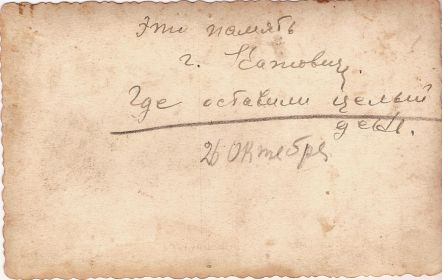 Эти память
г. Катовиц.
Где оставили целый
день.
26 Октября